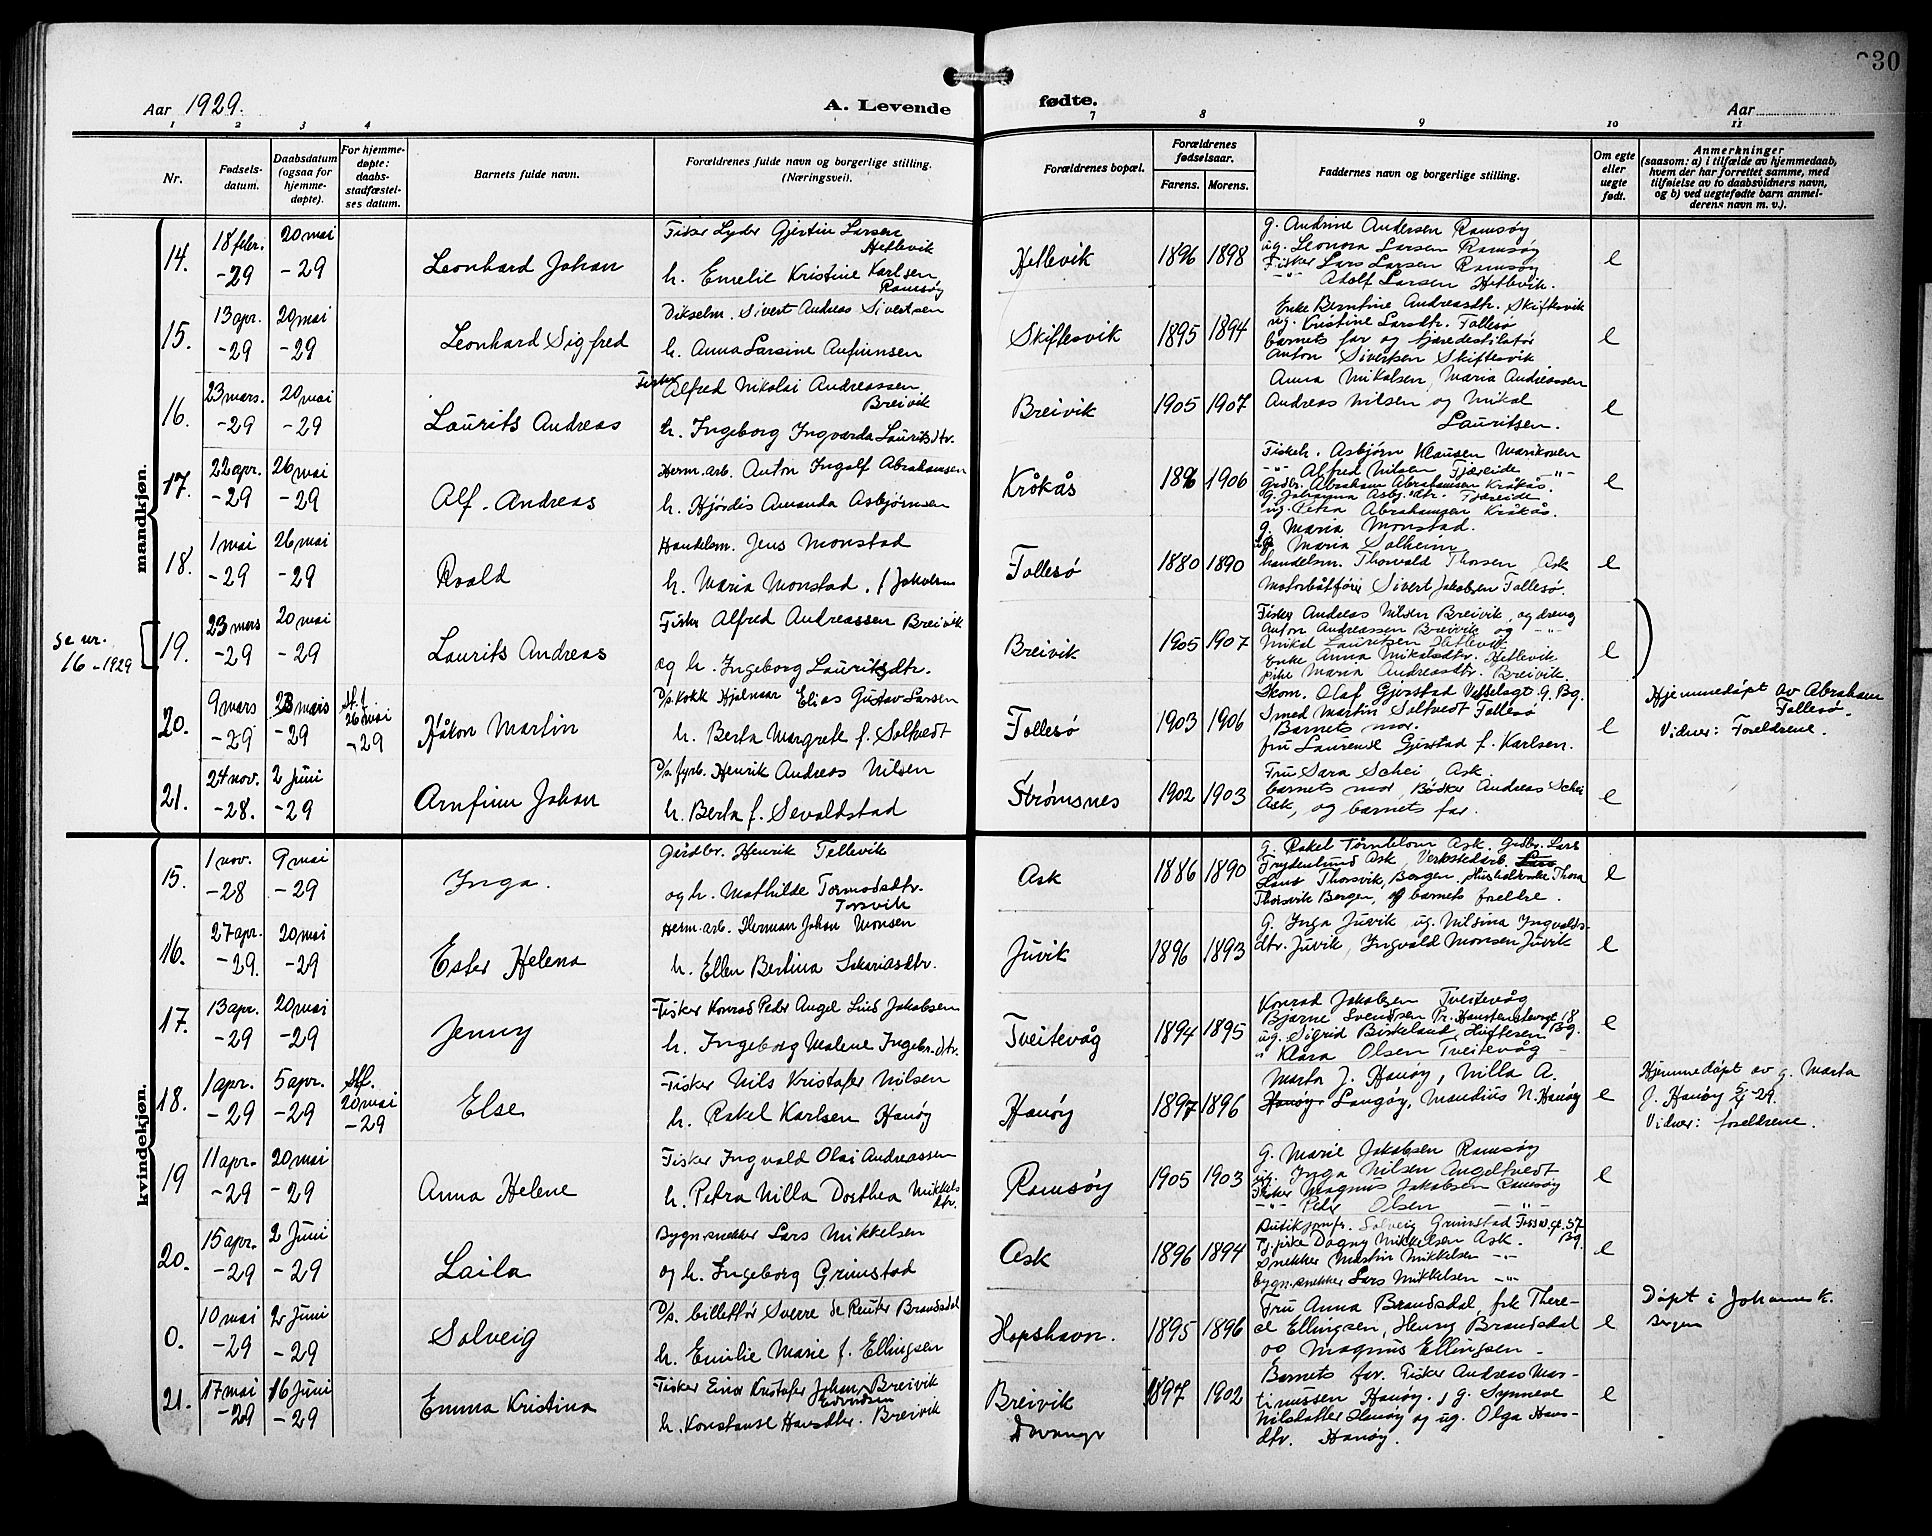 30
Aar 1929. A. Levende fødte. Aar
1 2 3 4 7 8 9 10 11
Nr. Fødsels-datum. Daabsdatum (ogsaa for hjemme-døpte). For hjemme-døpte: daabs-stadfæstel-ses datum. Barnets fulde navn. Forældrenes fulde navn og borgerlige stilling. (Næringsvei). Forældrenes bopæl. Forældrenes fødselsaar. Farens. Morens. Faddernes navn og borgerlige stilling. Om egte eller uegte født. Anmerkninger (saasom: a) i tilfælde av hjemmedaab, hvem der har forrettet samme, med tilføielse av to daabsvidners navn, og b) ved uegtefødte barn anmel-derens navn m. v.).
mandkjøn.
14. 18 febr. -29 20 mai -29 Leonhard Johan
Fisker Lyder Gjertin Larsen
Hetlevik
h. Emelie Kristine Karlsen
Ramsøy
Hetlevik 1896 1898
g. Andrine Andersen Ramsøy
ug. Leonora Larsen Ramsøy
Fisker Lars Larsen Ramsøy
-"- Adolf Larsen Hetlevik.
e
15. 13 apr. -29 20 mai -29 Leonhard Sigfred
Dikselm. Sivert Andreas Sivertsen
h. Anna Larsine Anfinnsen
Skiftesvik 1895 1894
Enke Berntine Andreasdtr. Skiftesvik
ug. Kristine Larsdtr. Tollesø
barnets far og tjæredestilatør
Anton Sivertsen Skiftesvik
e
16. 23 mars. -29 20 mai -29 Laurits Andreas
Fisker Alfred Nikolai Andreassen
Breivik
h. Ingeborg Ingvarda Lauritsdtr.
Breivik 1905 1907
Anna Mikalsen, Maria Andreassen
Andreas Nilsen og Mikal
Lauritsen.
e
17. 22 apr. -29 26 mai -29 Alf. Andreas
Herm. arb. Anton Ingolf Abrahamsen
h. Hjørdis Amanda Asbjørnsen
Kråkås 1896 1906
Fiskeh. Asbjørn Klausen Marikoven
-"- Alfred Nilsen Tjæreide -"-
Grdbr. Abraham Abrahamsen Kråkås.
g. Johanna Asbj.dtr. Tjæreide
ug. Petra Abrahamsen Kråkås.
e
18. 1 mai -29 26 mai -29 Roald
Handelsm. Jens Monstad
h. Maria Monstad. f. Jakobsen
Tollesø 1880 1890
g. Maria Monstad.
ug. Maria Solheim
handelsm. Thorvald Thorsen Ask
Motorbåtfører Sivert Jakobsen Tollesø.
e
se nr. 16 - 1929
19. 23 mars -29 20 mai -29 Laurits Andreas
Fisker Alfred Andreassen Breivik
og h. Ingeborg Lauritsdtr.
Breivik 1905 1907
Fisker Andreas Nilsen Breivik, og dreng
Anton Andreassen Breivik og -"-
Mikal Lauritsen Hetlevik
Enke Anna Mikalsdtr. Hetlevik
pike Maria Andreasdtr. Breivik.
e
20. 9 mars -29 23 mars -29 Stf. 26 mai -29 Håkon Martin
D/s. kokk Hjalmar Elias Gustav Larsen
h. Berta Margrete f. Soltvedt
Tollesø 1903 1906
Skom. Olaf Gjerstad g. Bg.
Smed Martin Soltvedt Tollesø
Barnets mor.
fru Laurense Gjerstad f. Karlsen.
e
Hjemmedøpt av Abraham
Tollesø.
Vidner: Foreldrene.
21. 24 nov. -28. 2 Juni -29 Arnfinn Johan
D/s. fyrb. Henrik Andreas Nilsen
h. Berta f. Sevaldstad
Strømsnes 1902 1903
Fru Sara Schei, Ask
barnets mor, Bødker Andreas Schei
Ask, og barnets far.
e
kvindekjøn.
15. 1 nov. -28 9 mai -29 Inga.
Gårdbr. Henrik Tellevik
og h. Mathilde Tormodsdtr.
Torsvik
Ask 1886 1890
g. Rakel Tørnblom Ask. Grdbr. Lars
Frydenlund Ask, Verkstedarb.
Thorsvik, Bergen. Thora
Thorsvik Bergen, og barnets foreldre.
e
16. 27 apr. -29. 20 mai -29 Ester Helena
Herm. arb. Herman Johan Monsen
h. Ellen Bertina Sakariasdtr.
Juvik 1896 1893
g. Inga Juvik, ug. Nilsina Ingvalds-
dtr. Juvik, Ingvald Monsen Juvik
e
17. 13 apr. -29 20 mai -29 Jenny
Fisker Konrad Peder Angel Lind Jakobsen
h. Ingeborg Malene Ingebr.dtr.
Tveitevåg 1894 1895
Konrad Jakobsen Tveitevåg
Bjarne Svendsen 18
ug. Sigrid Birkeland, Bg.
" Klara Olsen Tveitevåg
e
18. 1 apr. -29 5 apr. -29 Stf. 20 mai -29 Else
Fisker Nils Kristofer Nilsen
h. Rakel Karlsen Hanøy
Hanøy 1897 1896
Marta J. Hanøy, Nilla A.
Hanøy. Langøy, Mandius N. Hanøy
e
Hjemmedøpt av g. Marta
J. Hanøy 5/4 -29.
Vidner: foreldrene.
19 11 apr. -29 20 mai -29 Anna Helene
Fisker Ingvald Olai Andreassen
h. Petra Nilla Dorthea Mikkels
dtr.
Ramsøy 1905 1903
g. Marie Jakobsen Ramsøy
ug. Inga Nilsen Angeltvedt
Fisker Magnus Jakobsen Ramsøy
-"- Peder Olsen -"-
e
20. 15 apr. -29 2 Juni -29 Laila
Bygn.snekker Lars Mikkelsen
og h. Ingeborg Grimstad
Ask 1896 1894
Butikjomfr. Solveig Grimstad 57
Tj. pike Dagny Mikkelsen Ask. Bg.
Snekker Martin Mikkelsen -"-
bygn.snekker Lars Mikkelsen -"-
e
0. 10 mai -29 2 Juni -29 Solveig
D/s. billettør Sverre de Reuter Brandsdal
h. Emilie Marie f. Ellingsen
Hopshavn. 1895 1896
Fru Anna Brandsdal, frk There-
se Ellingsen, Henry Brandsdal
og Magnus Ellingsen
e
Døpt i Johannesk.
Bergen
21. 17 mai -29 16 Juni -29 Emma Kristina
Fisker Einar Kristofer Johan Breivik
h. Konstanse Hansdtr. Breivik
Breivik 1897 1902
Barnets far. Fisker Andreas Mar-
tinussen Hanøy., g. Synneve
Nilsdatter Hanøy og ug. Olga Hans-
dtr. Hanøy.
e